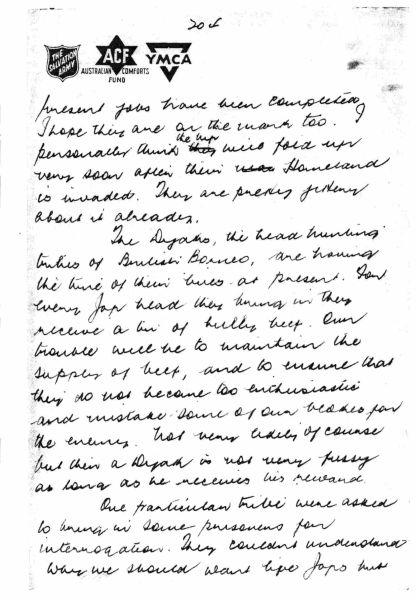 THE SALVATION ARMY
ACF
AUSTRALIAN COMFORTS FUND
YMCA
present jobs have been completed,
I hope they are on the mark too. I
personally think the Nip will fold up
very soon after their Homeland
is invaded. They are pretty jittery
about it already.
The Dyaks, the head hunting
tribes of British Borneo, are having
the time of their lives at present. For
every Jap head they bring in they
receive a tin of bully beef. Our
trouble will be to maintain the
supply of beef, and to ensure that
they do not become too enthusiastic
and mistake some of our blokes for
the enemy. Not very likely of course
but then a Dyak is not very fussy
as long as he receives his reward.
One particular tribe were asked
to bring in some prisoners for
interrogation. They couldnt understand
why we should want live Japs but